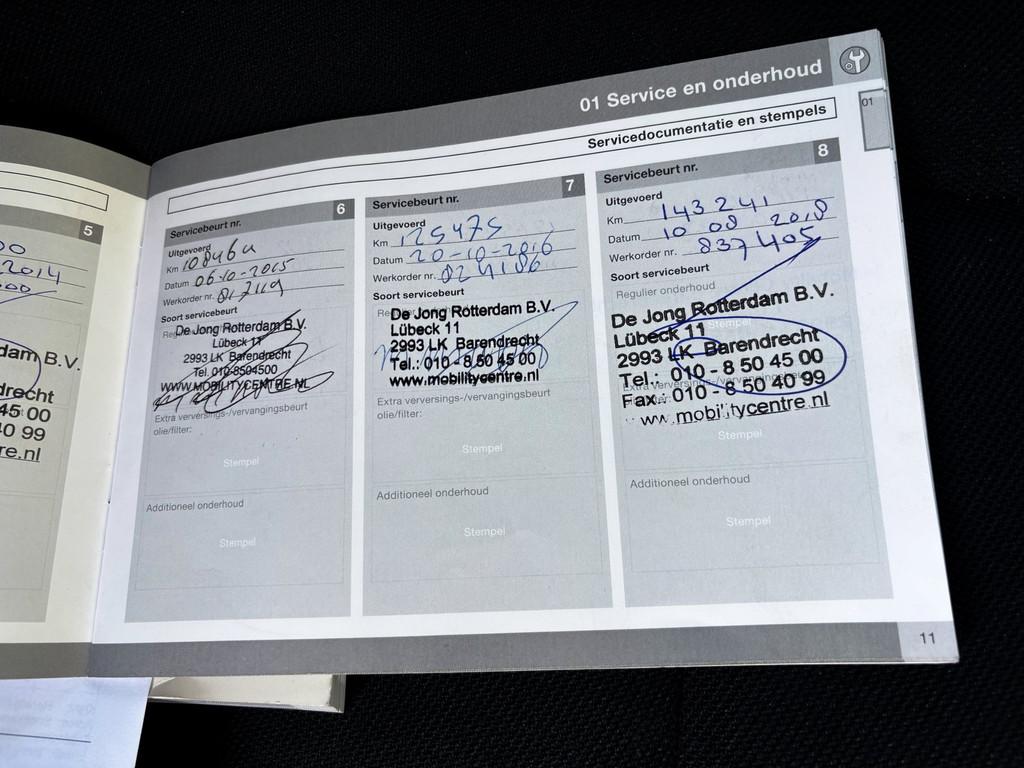 01 Service en onderhoud
01
Servicedocumentatie en stempels
5
2014
dam B.V.
drecht
45 00
40 99
re.nl
Servicebeurt nr. 6
Uitgevoerd
Km
Datum 06-10-2015
Werkorder nr.
Soort servicebeurt
De Jong Rotterdam B.V.
Lübeck 11
2993 LK Barendrecht
Tel. 010-8504500
WWW.MOBILITYCENTRE.NL
Extra verversings-/vervangingsbeurt
olie/filter:
Stempel
Additioneel onderhoud
Stempel
Servicebeurt nr. 7
Uitgevoerd
Km 125475
Datum 20-10-2016
Werkorder nr. 024186
Soort servicebeurt
De Jong Rotterdam B.V.
Lübeck 11
2993 LK Barendrecht
Tel.: 010 - 8 50 45 00
www.mobilitycentre.nl
Extra verversings-/vervangingsbeurt
olie/filter:
Stempel
Additioneel onderhoud
Stempel
Servicebeurt nr. 8
Uitgevoerd
Km 143241
Datum 10 08 2018
Werkorder nr. 837405
Soort servicebeurt
Regulier onderhoud
De Jong Rotterdam B.V.
Lübeck 11
Stempel
2993 LK Barendrecht
Tel.: 010 - 8 50 45 00
Fax.: 010 - 8 50 40 99
www.mobilitycentre.nl
Stempel
Additioneel onderhoud
Stempel
11